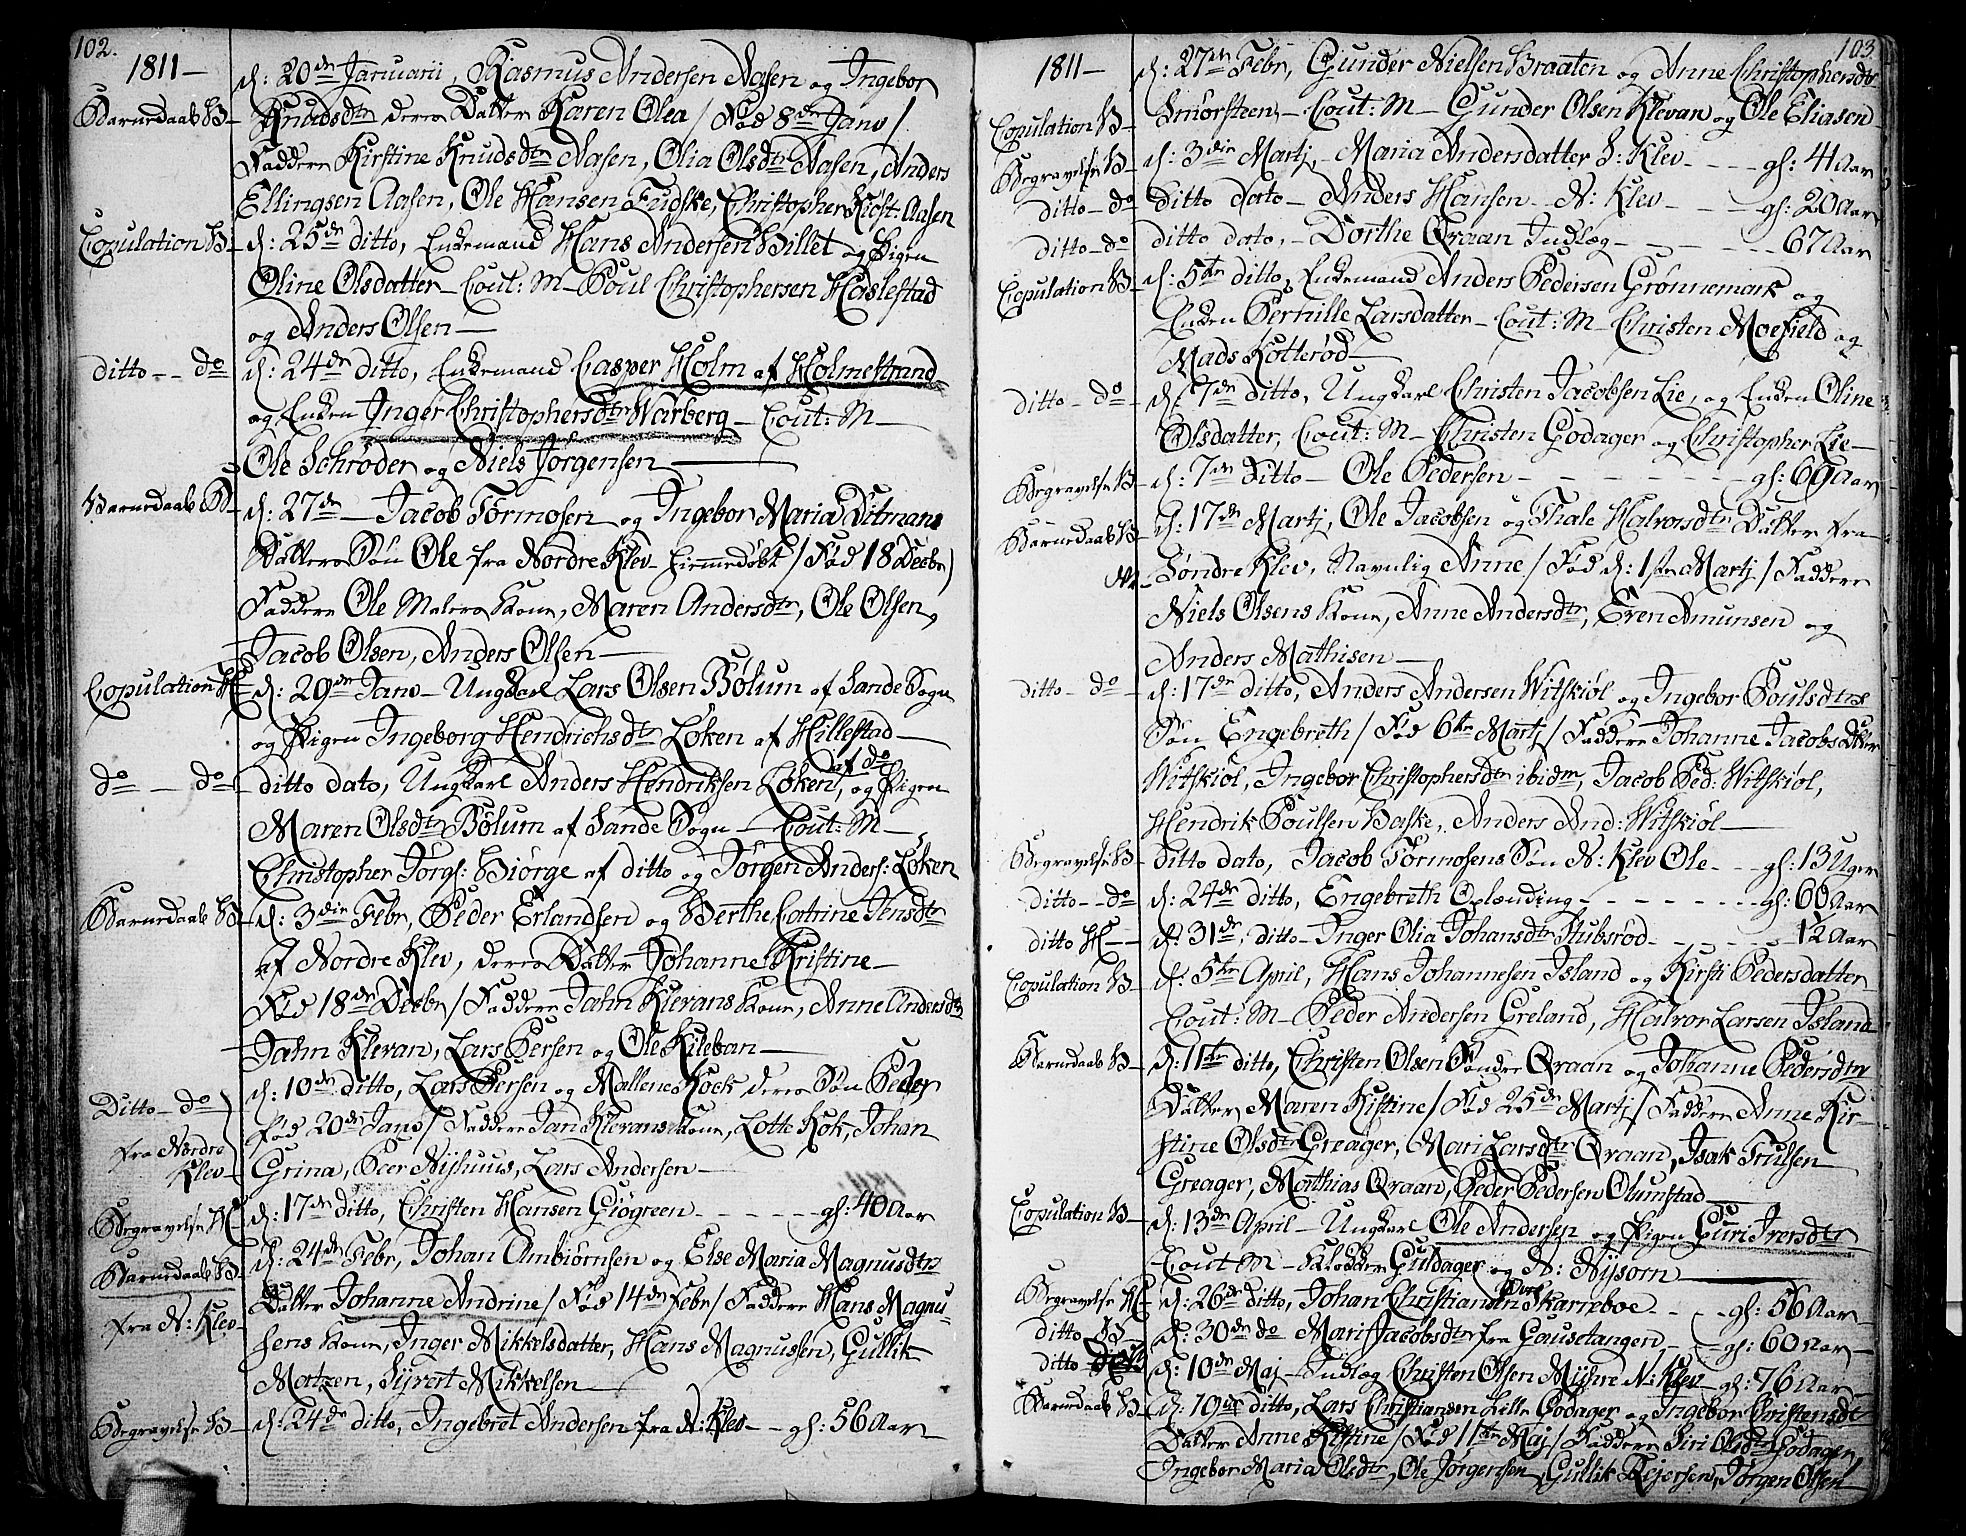 102.
1811 —
d: 20de Januarii, Rasmus Andersen Aasen og Ingebor
Barnedaab B — Knudsdtr deres Datter Karen Olea / Fød 8de Janv /
Faddere Kirstine Knudsdtr Aasen, Olia Olsdtr Aasen, Anders
Ellingsen Aasen, Ole Hansen Fudske, Christopher Aasen
Copulation B — d: 25de ditto, Enkemand Hans Andersen Billet og Pigen
Oline Olsdatter — Cout: M — Poul Christophersen Haslestad
og Anders Olsen —
ditto — do d: 24de ditto, Enkemand Casper Holm af Holmestrand
og Enken Inger Christophersdtr Warberg — Cout: M —
Ole Schrøder og Niels Jørgensen —
Barnedaab B — d: 27de — Jacob Tormosen og Ingebor Maria Ditmans
Datters Søn Ole fra Nordre Klev hiemmedøbt / Fød 18 Decbr /
Faddere Ole Malers Kone, Maren Andersdtr, Ole Olsen,
Jacob Olsen, Anders Olsen —
Copulation H — d: 29de Janv — Ungkarl Lars Olsen Bølum af Sande Sogn
og Pigen Ingeborg Hendrichsdtr Løken af Hillestad —
do — do ditto dato, Ungkarl Anders Hendriksen Løken af do, og Pigen
Maren Olsdtr Bølum af Sande Sogn — Cout: M —
Christopher Jørgs: Biørge af ditto og Jørgen Anders: Løken
Barnedaab B — d: 3die Febr, Peder Erlandsen og Berthe Catrine Jensdtr
af Nordre Klev, deres Datter Johanne Kristine —
Fød 18de Decbr / Faddere Jahn Klevans Kone, Anne Andersdtr
Jahn Klevan, Lars Persen og Ole Kileban —
Ditto — do d: 10de ditto, Lars Persen og Mallene Kock deres Søn Peder
fra Nordre Klev — fød 20de Janv / Faddere Jan Klevans Kone, Lotte Kok, Johan
Grina, Peer Nyhuus, Lars Andersen —
Begravelse H — d: 17de ditto, Christen Hansen Giøgreen — — gl: 40 Aar
Barnedaab B — d: 24de Febr, Johan Ambiørnsen og Else Maria Magnusdtrs
fra N: Klev — Datter Johanne Andrine / Fød 14de Febr / Faddere Hans Magnu-
sens Kone, Inger Mikkelsdatter, Hans Magnussen, Gullik
Matzen, Syvert Mikkelsen —
Begravelse B — d: 24de ditto, Ingebret Andersen fra N: Klev — gl: 56 Aar
103
1811 —
d: 27de Febr, Gunder Nielsen Braaten og Anne Christophersdtr
Copulation B — Smørsteen, — Cout: M — Gunder Olsen Klevan og Ole Eliasen
Begravelse B — d: 3die Martj, Maria Andersdatter S: Klev — — gl: 41 Aar
ditto — do ditto dato — Anders Hansen — N: Klev — — gl: 20 Aar
ditto — do ditto dato, — Dorthe Qraan Indlæg — — 67 Aar
Copulation B — d: 5te ditto, Enkemand Anders Pedersen Grønnemark og
Enken Pernille Larsdatter — Cout: M — Christen Moefield og
Mads Kotterød —
ditto — do d: 7de ditto, Ungkarl Christen Jacobsen Lie, og Enken Oline
Olsdatter, Cout: M — Christen Godager og Christopher Lie —
Begravelse B — d: 7de Ditto — Ole Pedersen — — gl: 69 Aar
Barnedaab B — d: 17de Martj, Ole Jacobsen og Thale Halvorsdtr Datter fra
Søndre Klev, Navnlig Anne / Fød d: 1ste Martj / Faddere
Niels Olsens Kone, Anne Andersdtr, Even Amunsen og
Anders Mathisen —
ditto — do — d: 17de ditto, Anders Andersen Witskiøl og Ingebor Poulsdtrs
Søn Engebreth / Fød 6te Martj / Faddere Johanne Jacobs Datter
Witskiøl, Ingebor Christophersdtr ibidm, Jacob Ped: Witskiøl,
Hendrik Poulsen Baske, Anders And: Witskiøl —
Begravelse B — ditto dato, Jacob Tormosens Søn N: Klev Ole — gl: 13 Uger
ditto — do d: 24de ditto, Engebreth Oplænding — — gl: 60 Aar
ditto H — d: 31te, ditto — Inger Olia Johansdtr Stubsrød — — 1/2 Aar
Copulation B — d: 5te April, Hans Johannesen Island og Kirsti Pedersdatter
Cout: M — Peder Andersen Greland, Halvor Larsen Island
Barnedaab B — d: 11te ditto, Christen Olsen Søndre Qraan og Johanne Pedersdtr
Datter Maren Kistine / Fød 25de Martj / Faddere Anne Kir-
stine Olsdtr Greager, Mari Larsdtr Qraan, Isak Trulsen
Greager, Mathias Qraan, Peder Pedersen Olumstad —
Copulation B — d: 13de April — Ungkarl Ole Andersen og Pigen Guri Iversdtr
Cout M — Klokker Guldager og N: Nysom —
Begravelse H — d: 26de ditto, Johan Christian Skarreboe — — gl: 56 Aar
ditto B — d: 30de do Mari Jacobsdtr fra Gausetangen, — gl: 60 Aar —
ditto d: 10de Maj — Indlæg Christen Olsen Myhre N: Klev — gl: 76 Aar —
Barnedaab B — d: 19de ditto, Lars Christiansen Lille Godager og Ingebor Christensdtr
Datter Anne Kistine / Fød 11te Maj / Faddere Siri Olsdtr Godager,
Ingebor Maria Olsdtr, Ole Jørgensen, Gullik Rejersen, Jørgen Olsen